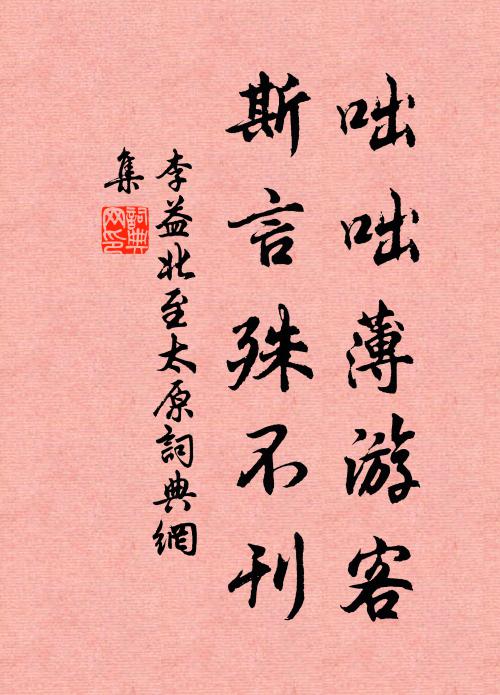 咄咄薄游客
斯言殊不刊
李益北至太原詞典網
集
詞典
网印